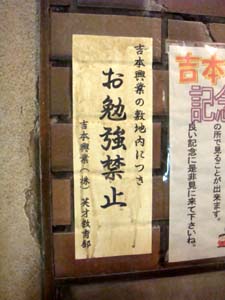 吉本興業の敷地内につき
お勉強禁止
吉本興業(株)英才教育部
吉本
記念
の所で見ることが出来ます。
良い記念に是非見に来て下さいね。